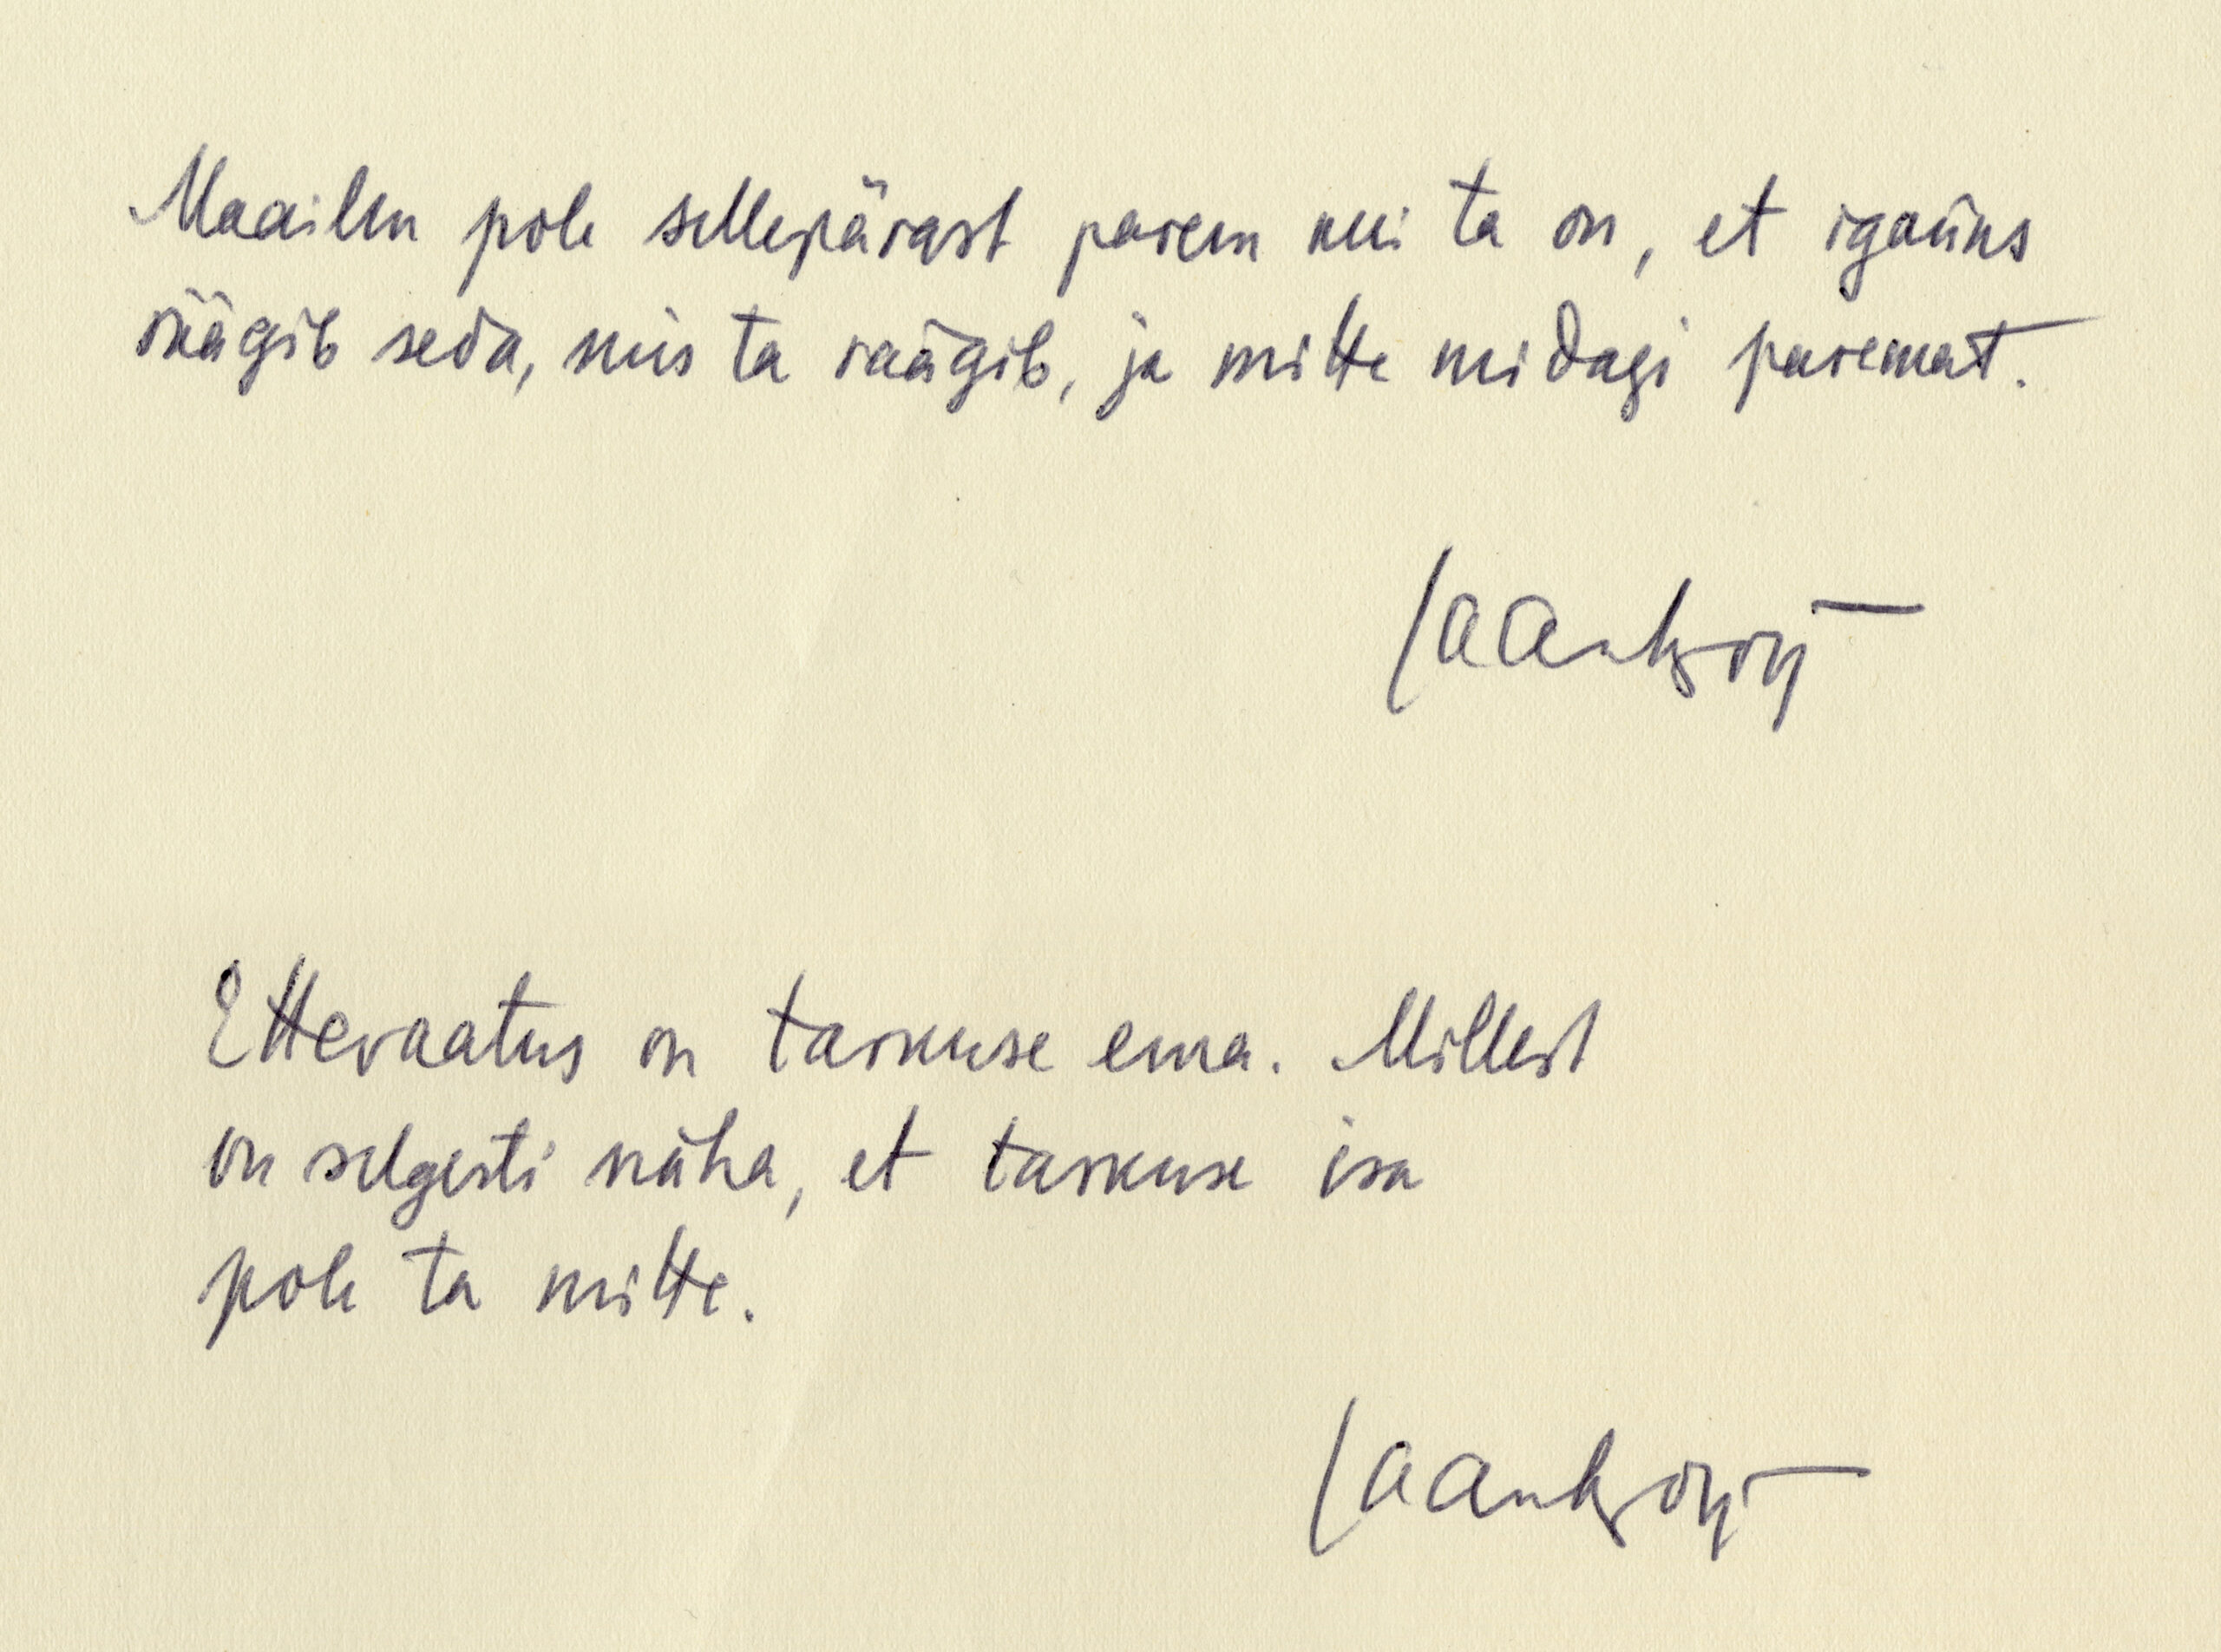 Maailm pole sellepärast parem kui ta on, et igaüks
räägib seda, mis ta räägib, ja mitte midagi paremat.
Ettevaatus on tarkuse ema. Millest
on selgesti näha, et tarkuse isa
pole ta mitte.